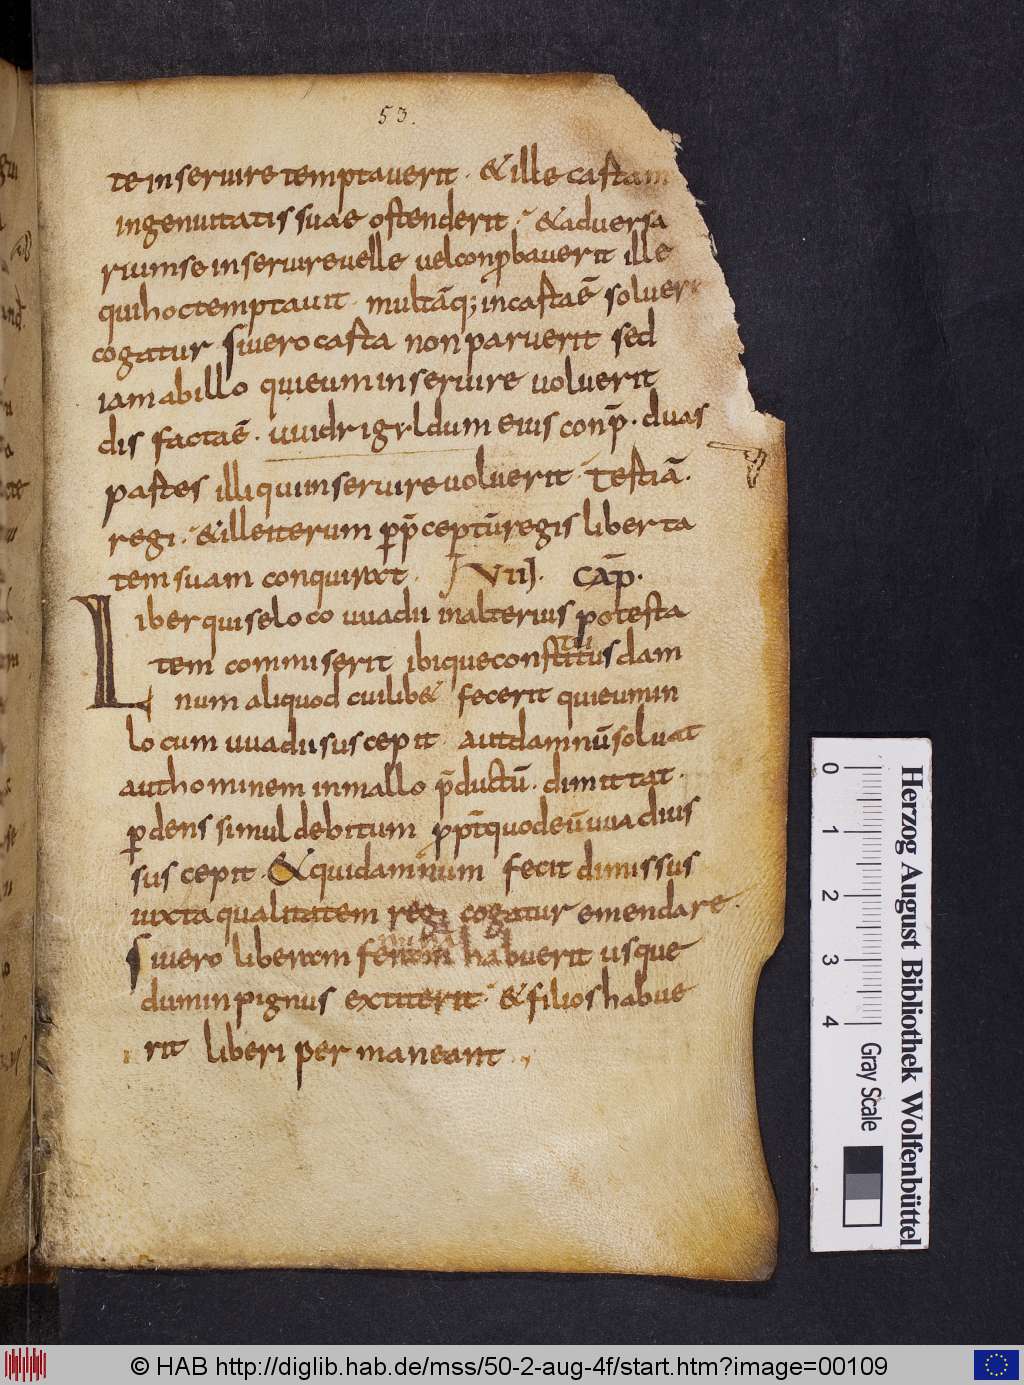 53.
te inservire temptaverit · & ille castam
ingenuitatis suae ostenderit · & adversa
rium se inservire velle vel conprobaverit ille
qui hoc temptavit · multāq; incastaē solver
cogatur Si vero casta non paruerit sed
iam ab illo qui eum inservire voluerit
dis factaē · uuidrigyldum eius conp̄ · duas
partes illi qui inservire voluerit · Testiā ·
regi · & ille iterum per p̄ceptū regis liberta
tem suam conquirat · VII · CAP̄ ·
Liber qui se loco uuadii in alterius potesta
tem commiserit ibique constitutus dam
num aliquod cuilib& fecerit qui eum in
locum uuadii suscepit · aut damnū solvat
aut hominem in mallo p̄ductū · dimittat ·
perdens simul debitum propt̄ quod eū uuadius
suscepit · & qui damnum fecit dimissus
iuxta qualitatem regi cogatur emendare ·
Si vero liberam feminam habuerit usque
dum in pignus extiterit · & filios habue
rit liberi permaneant ·
0 1 2 3 4
Herzog August Bibliothek Wolfenbüttel
Gray Scale
© HAB http://diglib.hab.de/mss/50-2-aug-4f/start.htm?image=00109